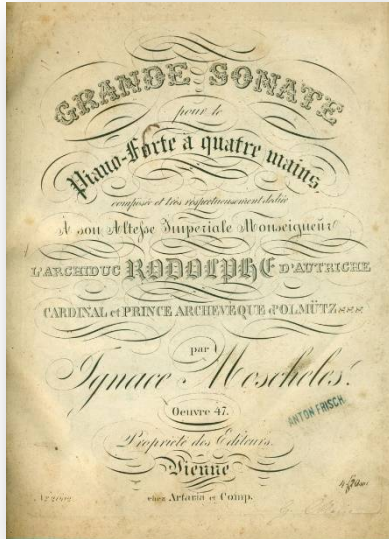 GRANDE SONATE
pour le
Piano-Forte à quatre mains,
composée et très respectueusement dediée
À son Altesse Imperiale Monseigneur
L'ARCHIDUC RODOLPHE D'AUTRICHE
CARDINAL et PRINCE ARCHEVÊQUE d'OLMÜTZ
par
Ignace Moscheles.
Oeuvre 47.
ANTON FRISCH.
Propriété des Editeurs.
Vienne
chez Artaria et Comp.